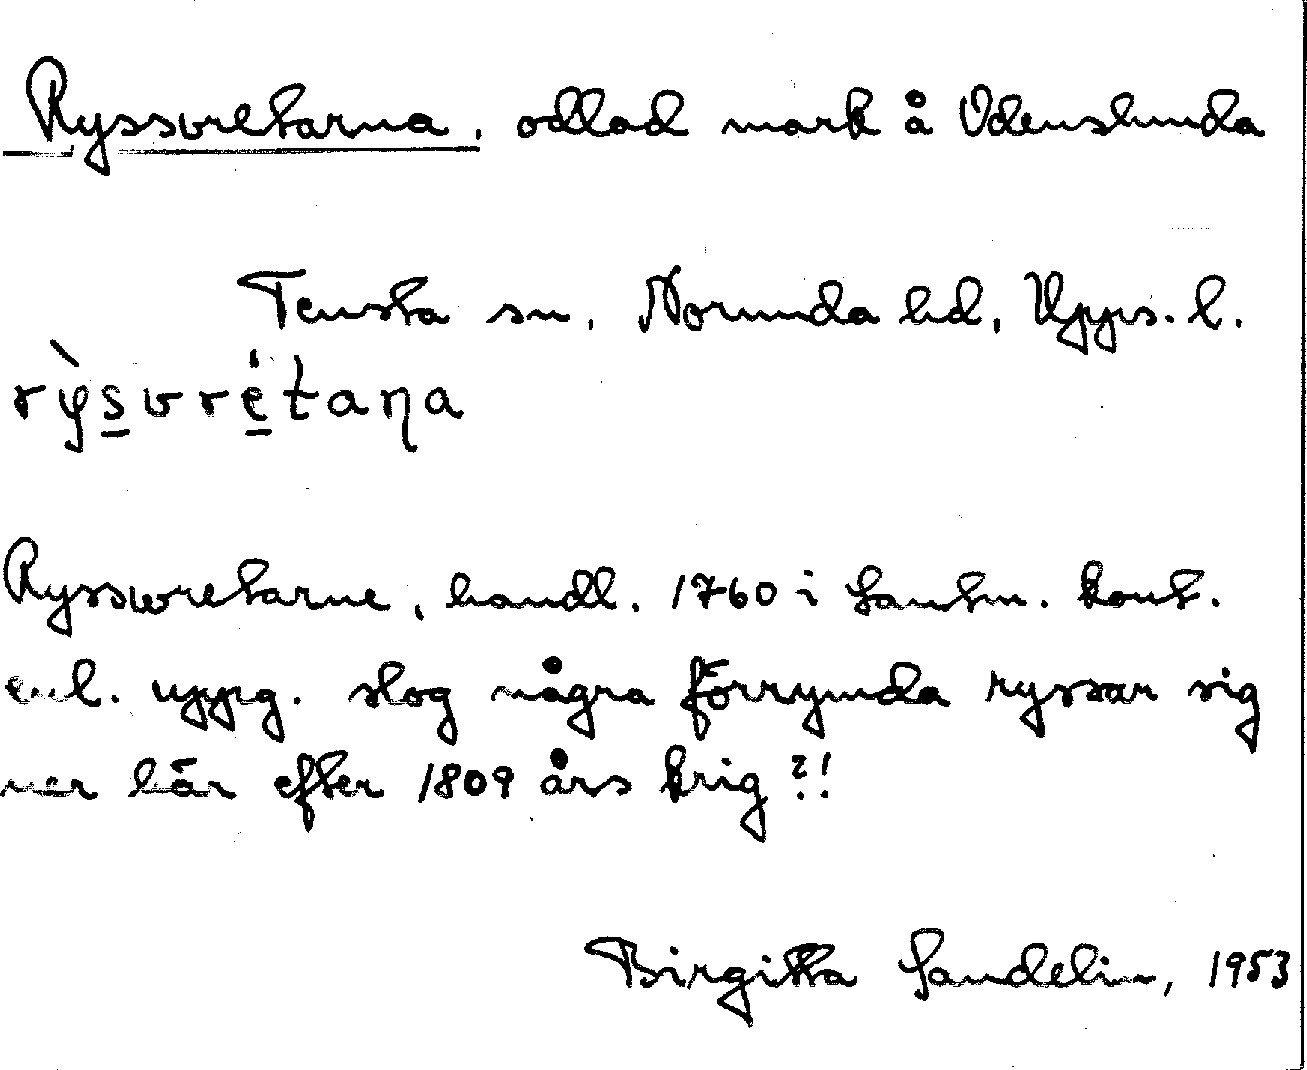 Ryssvretarna, odlad mark å Odenslunda
Tensta sn, Norunda hd, Upps. l.
rỳs̲vrė̲taɳa
Ryssvretarne, handl. 1760 i Lantm. kont.
enl. uppg. slog några förrymda ryssar sig
ner här efter 1809 års krig?!
Birgitta Sandelin, 1953